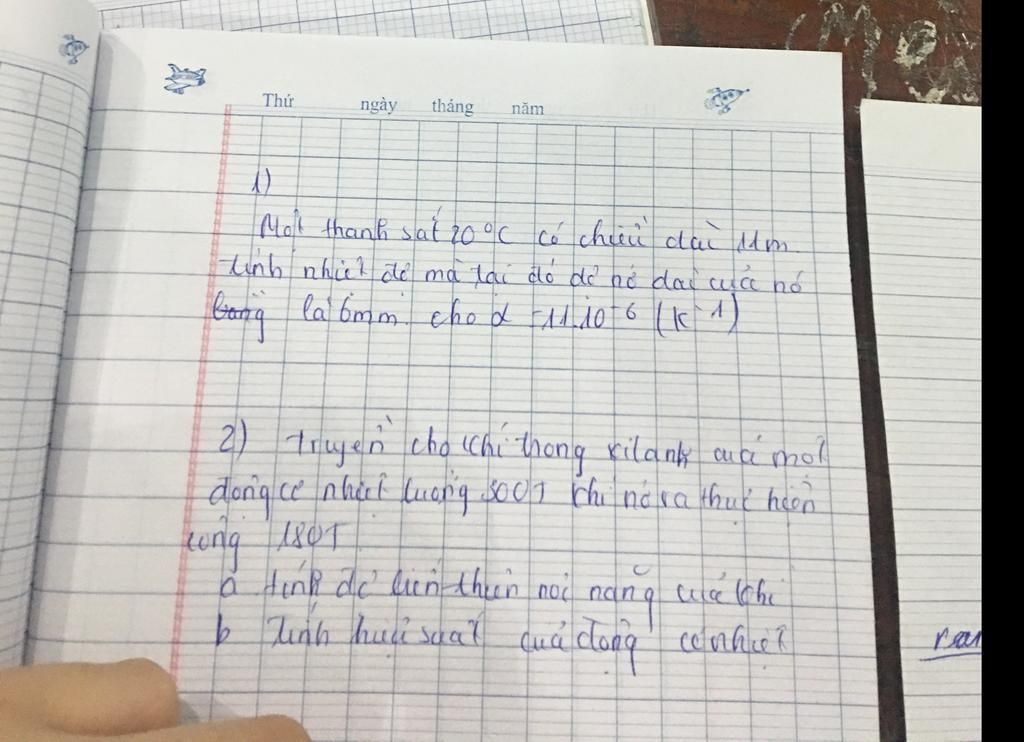 Thứ ngày tháng năm
1)
Một thanh sắt 20°C có chiều dài 11m
tính nhiệt độ mà tại đó độ nở dài của nó
bằng là 6mm. cho α = 11.10-6 (K-1)
2) truyền cho khí trong xilanh của một
động cơ nhiệt lượng 500J khí nở ra thực hiện
công 180J
a tính độ biến thiên nội năng của khí
b tính hiệu suất của động cơ nhiệt